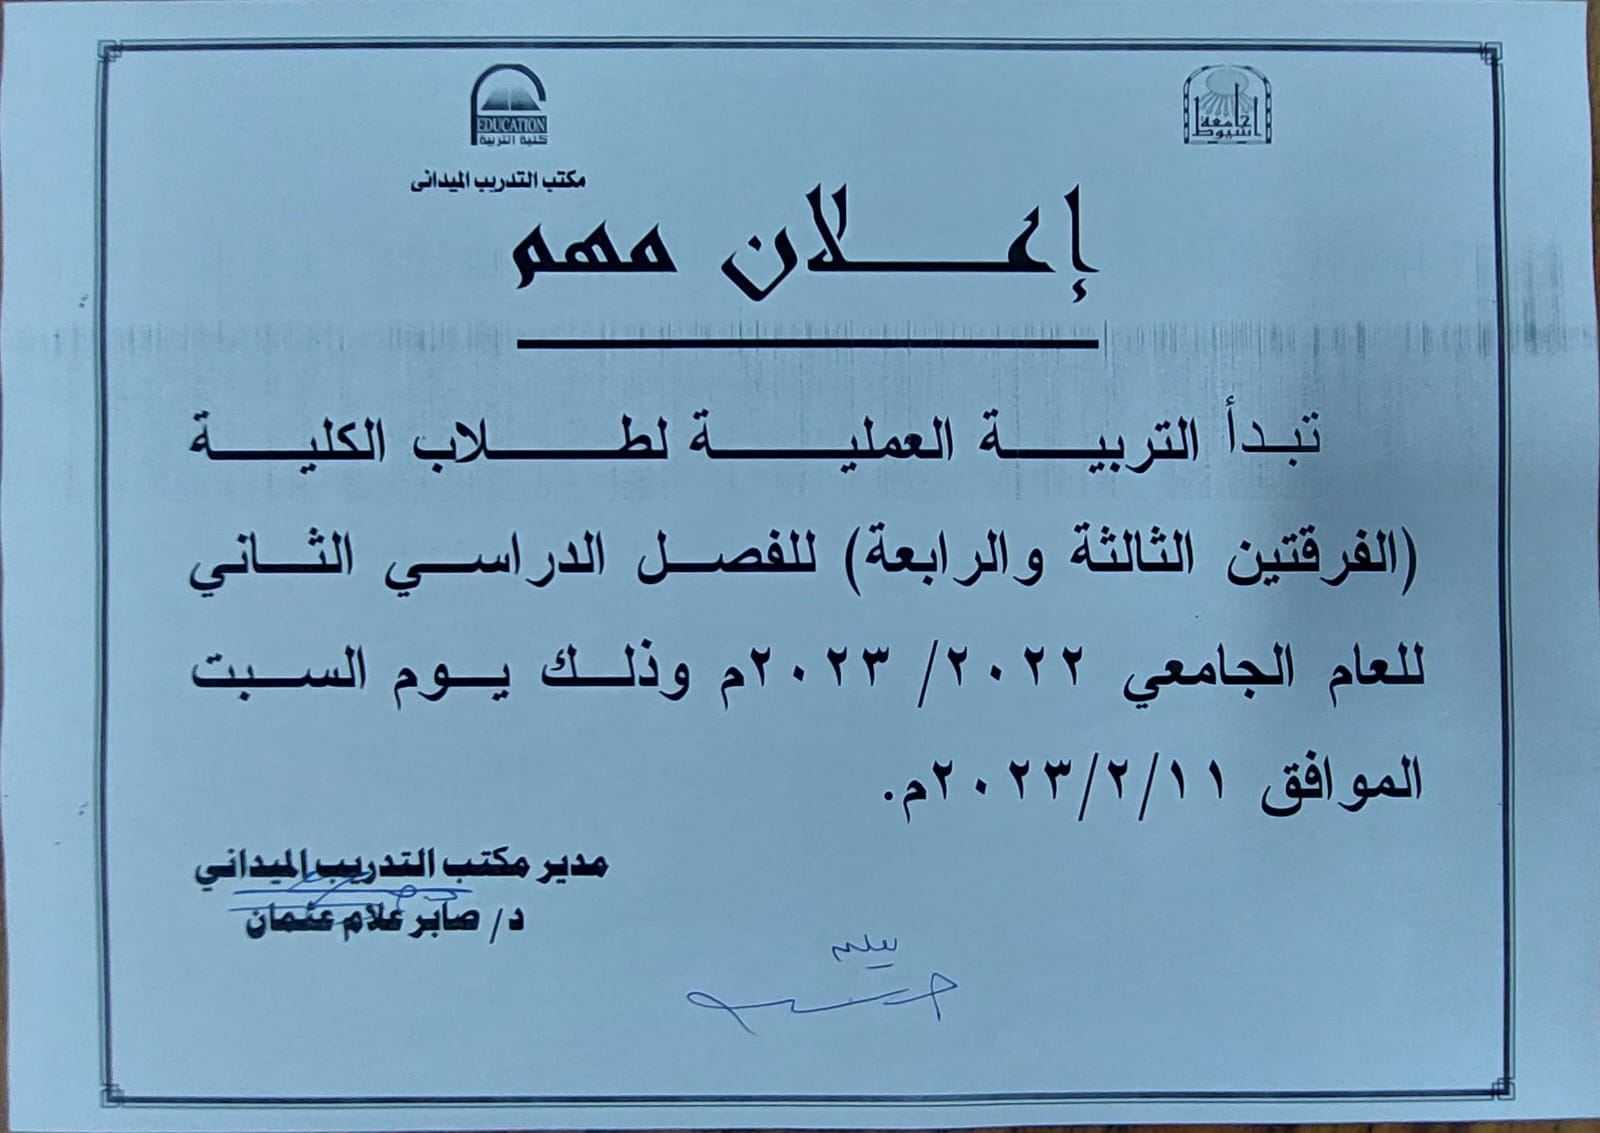 جامعة
أسيوط
EDUCATION
كلية التربية
مكتب التدريب الميدانى
إعلان مهم
تبدأ التربية العملية لطلاب الكلية
(الفرقتين الثالثة والرابعة) للفصل الدراسي الثاني
للعام الجامعي ٢٠٢٢/ ٢٠٢٣م وذلك يوم السبت
الموافق ٢٠٢٣/٢/١١م.
مدير مكتب التدريب الميداني
د/ صابر علام عثمان